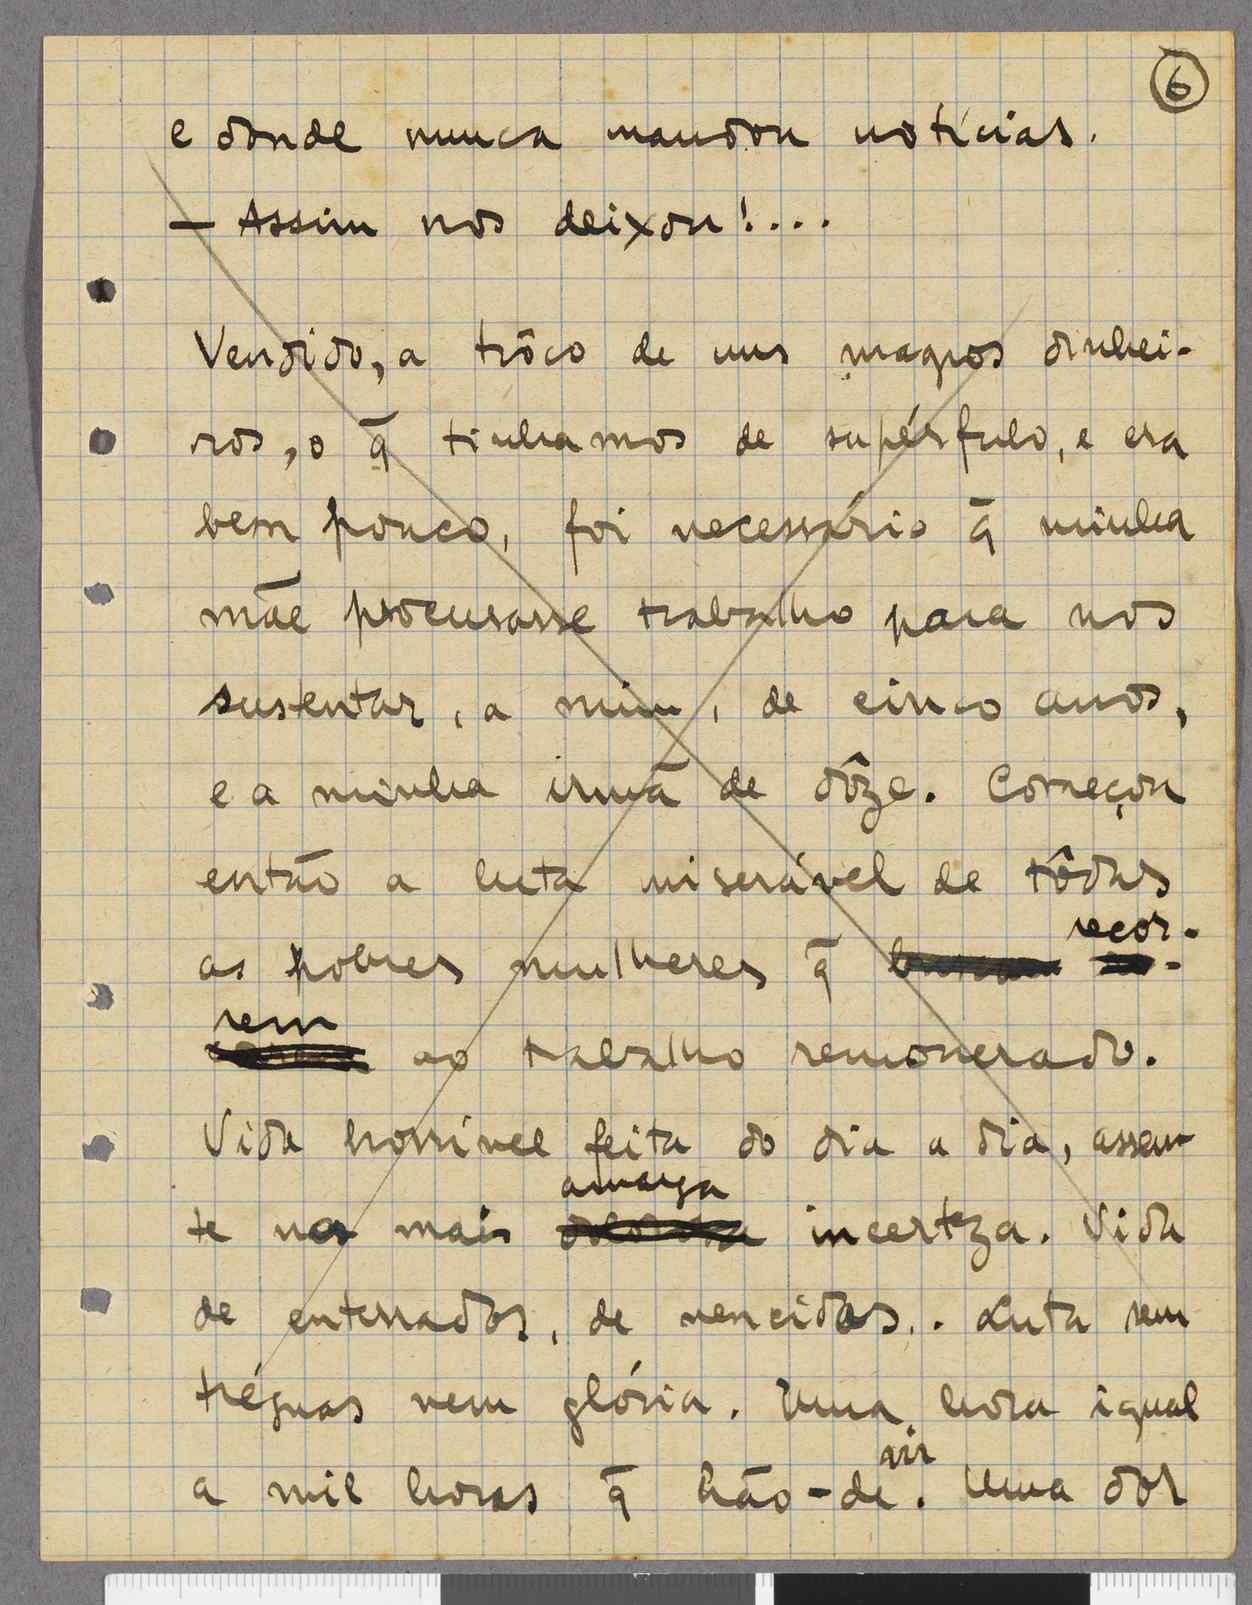 6
e donde nunca mandou notícias.
— Assim nos deixou!....
Vendido, a trôco de uns magros dinhei-
ros, o q̄ tinhamos de supérfulo, e era
bem pouco, foi necessário q̄ minha
mãe procurasse trabalho para nos
sustentar, a mim, de cinco anos,
e a minha irmã de dôze. Começou
então a luta miserável de tôdas
recor-
as pobres mulheres q̄
rem
ao trabalho remonerado.
Vida horrível feita do dia a dia, assen-
amarga
te na mais dolorosa incerteza. Vida
de enterrados, de vencidos.. Luta sem
tréguas nem glória. Uma hora igual
vir
a mil horas q̄ hão-de. Uma dor